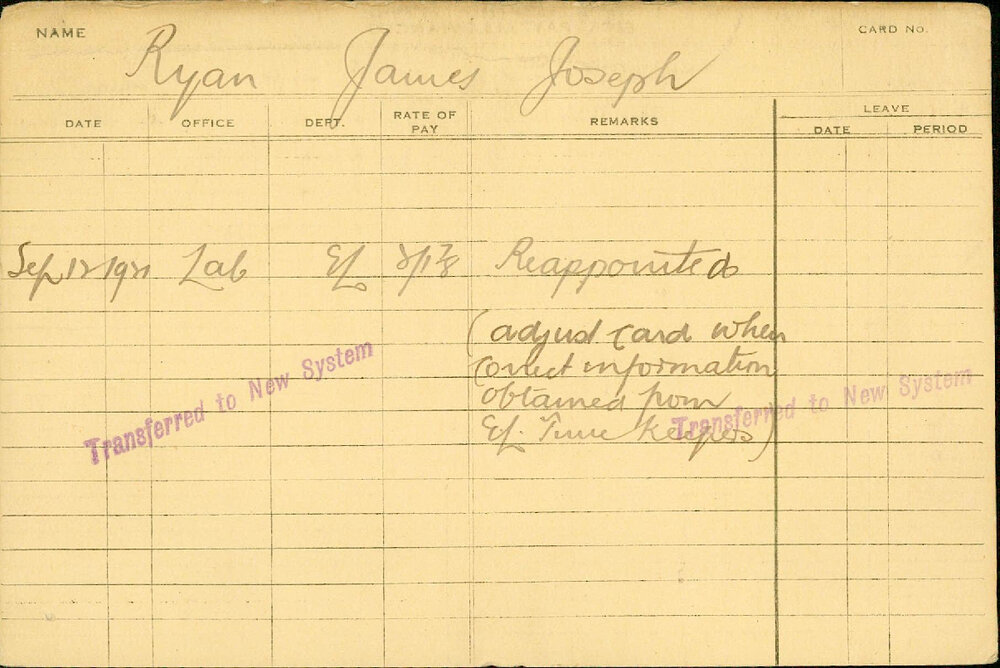 NAME
Ryan James Joseph
CARD No.
DATE OFFICE DEPT. RATE OF PAY REMARKS LEAVE
DATE PERIOD
Sep 12 1921 Lab EL Reappointed
(adjust card when
correct information
obtained from
EL. Time Keepers)
Transferred to New System
Transferred to New System